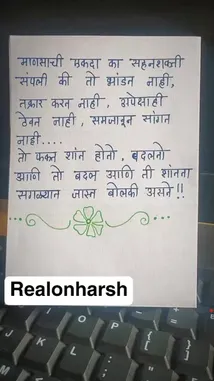 माणसाची एकदा का सहनशक्ती
संपली की तो भांडत नाही,
तक्रार करत नाही, अपेक्षाही
ठेवत नाही, समजावून सांगत
नाही....
तो फक्त शांत होतो, बदलतो
आणि तो बदल आणि ती शांतता
सगळ्यात जास्त बोलकी असते!!
Realonharsh